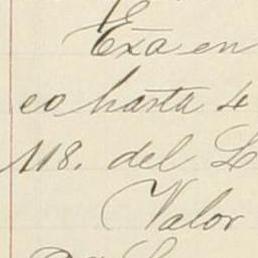 Exa en
eo hasta 4
118. del L
Valor